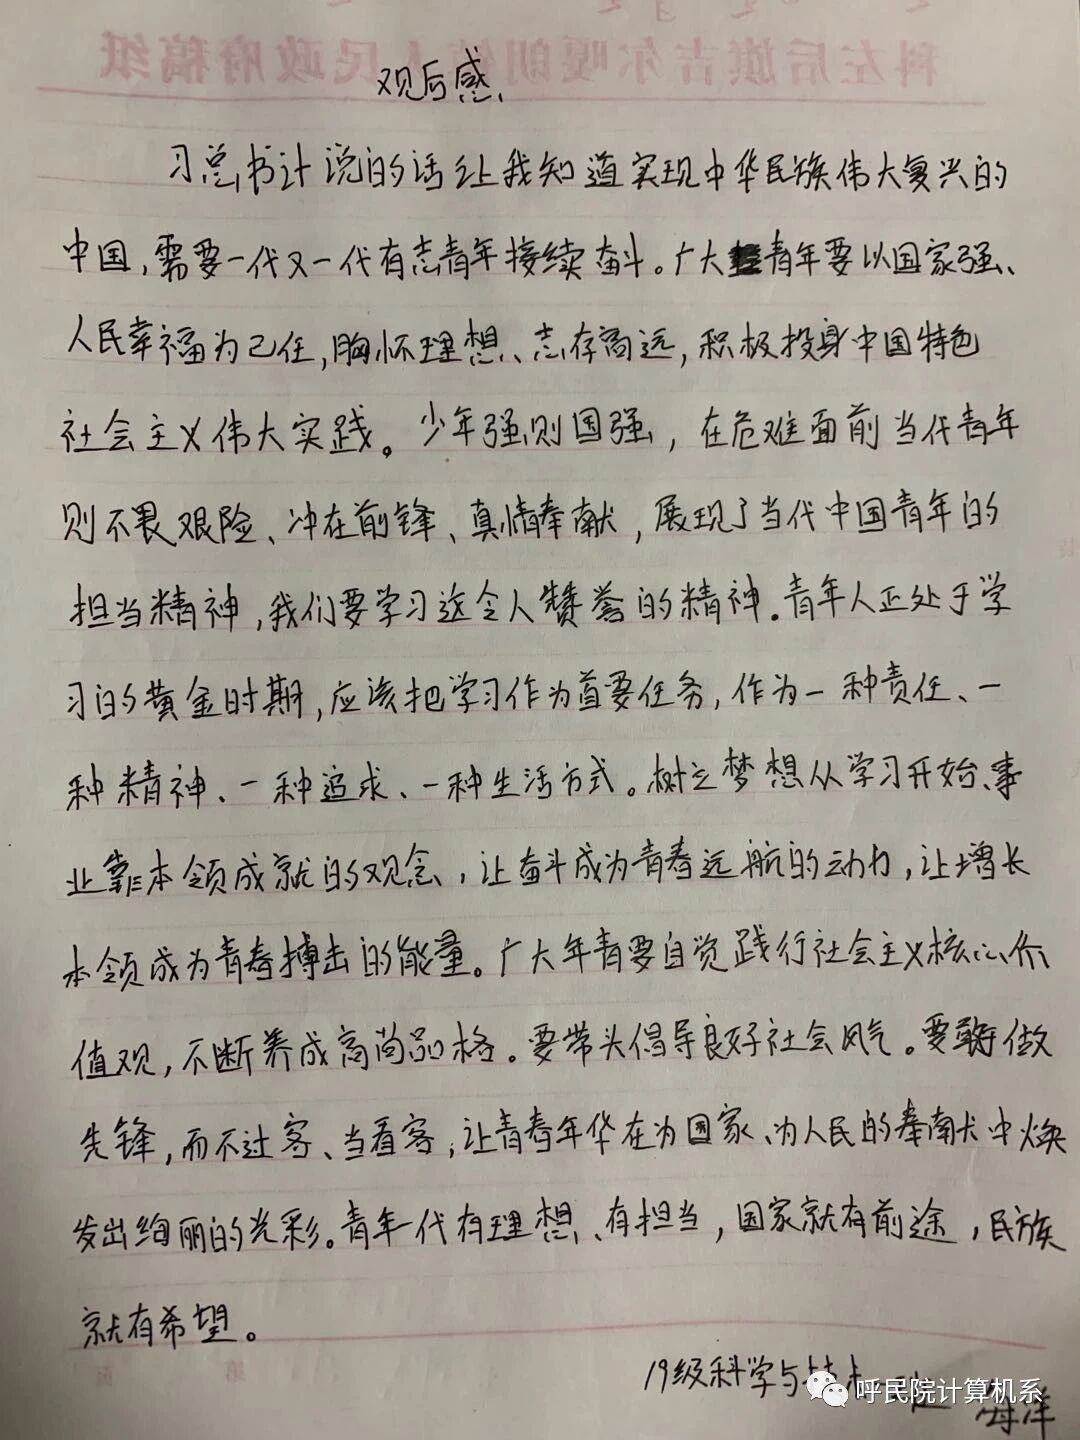 科左后旗吉尔嘎朗镇人民政府稿纸
观后感
习总书计说的话让我知道实现中华民族伟大复兴的
中国,需要一代又一代有志青年接续奋斗。广大青年要以国家强、
人民幸福为己任,胸怀理想、志存高远,积极投身中国特色
社会主义伟大实践。少年强则国强,在危难面前当代青年
则不畏艰险、冲在前锋、真情奉献,展现了当代中国青年的
担当精神,我们要学习这令人赞誉的精神.青年人正处于学
习的黄金时期,应该把学习作为首要任务,作为一种责任、一
种精神、一种追求、一种生活方式。树立梦想从学习开始、事
业靠本领成就的观念,让奋斗成为青春远航的动力,让增长
本领成为青春搏击的能量。广大年青要自觉践行社会主义核心价
值观,不断养成高尚品格。要带头倡导良好社会风气。要敢做
先锋,而不过客、当看客,让青春年华在为国家、为人民的奉献中焕
发出绚丽的光彩。青年一代有理想、有担当,国家就有前途,民族
就有希望。
第 页
19级科学与技术 班 海洋
呼民院计算机系